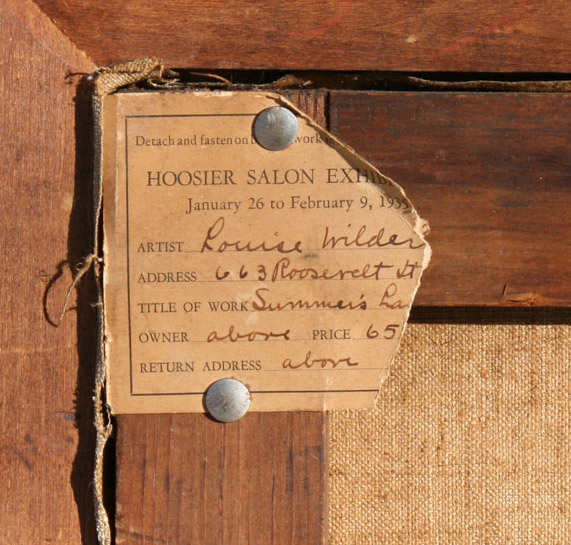 Detach and fasten on work
HOOSIER SALON EXHIB
January 26 to February 9, 1935
ARTIST Louise Wilder
ADDRESS 663 Roosevelt St
TITLE OF WORK Summer's La
OWNER above PRICE 65
RETURN ADDRESS above